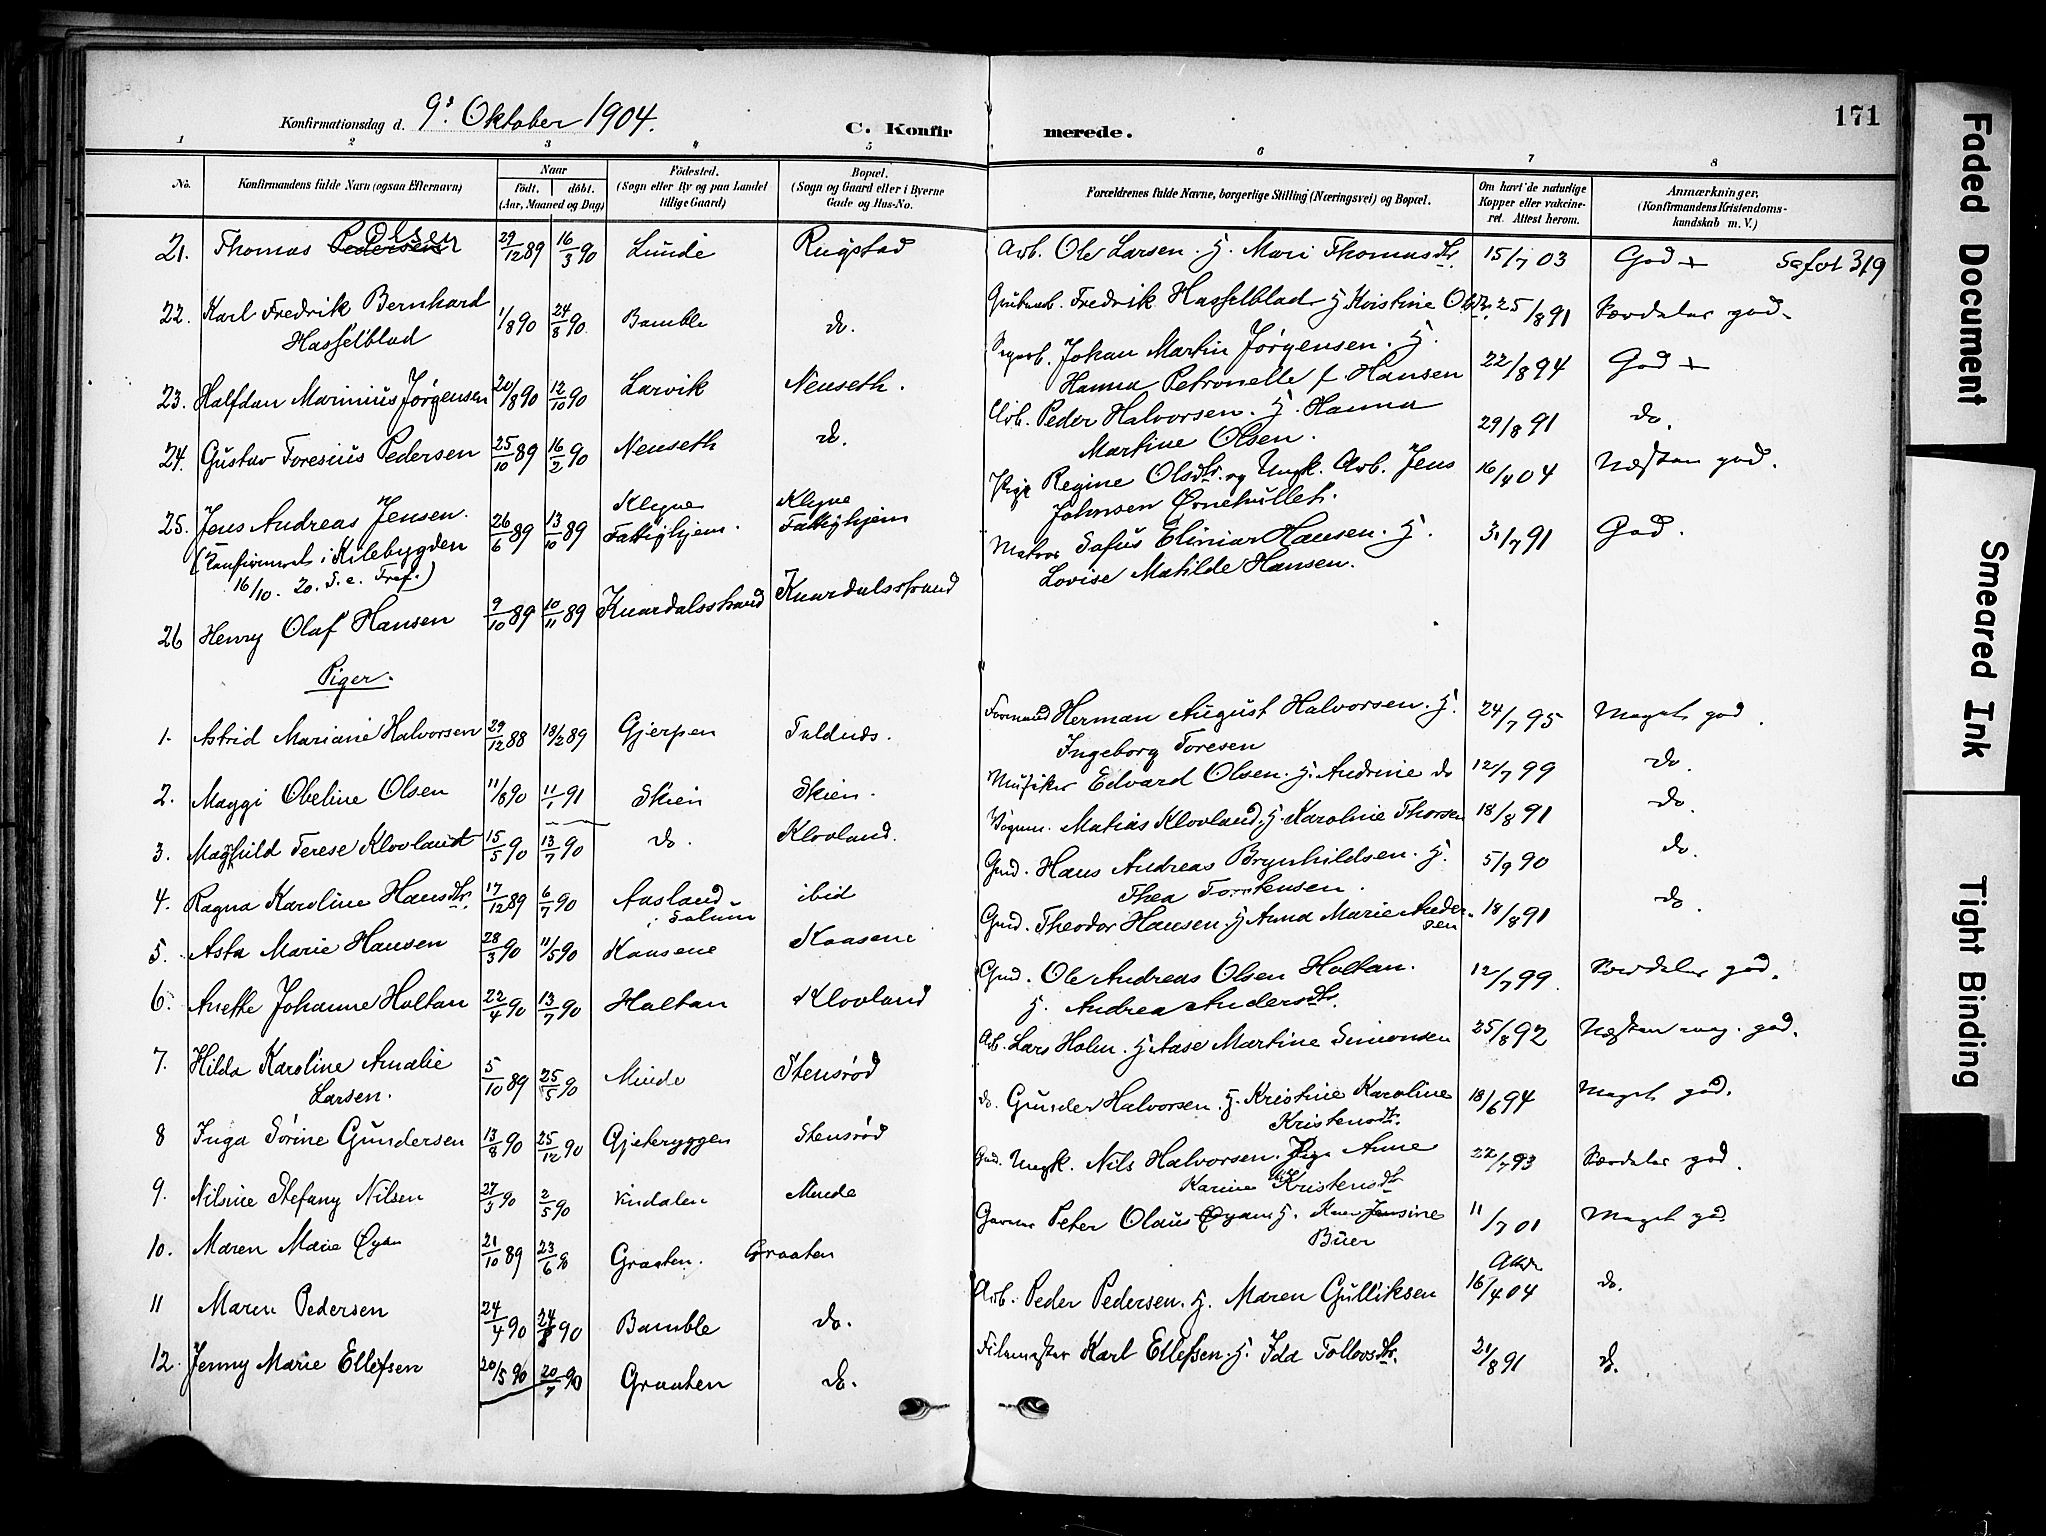 Konfirmationsdag d. 9de Oktober 1904.
C. Konfirmerede.
171
1 2 3 4 5 6 7 8
No. Konfirmandens fulde Navn (ogsaa Efternavn) Naar født. døbt. (Aar, Maaned og Dag) Fødested. (Sogn eller By og paa Landet tillige Gaard) Bopæl. (Sogn og Gaard eller i Byerne Gade og Hus-No. Forældrenes fulde Navne, borgerlige Stilling (Næringsvei) og Bopæl. Om havt de naturlige Kopper eller vakcineret. Attest herom. Anmærkninger, (Konfirmandens Kristendomskundskab m. V.)
21. Thomas Pedersen Olsen 29/12 89 16/3 90 Lunde Rugstad Arb. Ole Larsen. H. Mari Thomasdtr. 15/7 03 God + Se fol 319
22. Karl Fredrik Bernhard Hasselblad 1/8 90 24/8 90 Bamble do. Fredrik Hasselblad H Kristine Olsdtr. 25/8 91 Særdeles god.
23. Halfdan Marinius Jørgensen 20/8 90 12/10 90 Larvik Nenseth. Johan Martin Jørgensen. H. Hanna Petronelle f. Hansen 22/8 94 God +
24. Gustav Toresius Pedersen 25/10 89 16/2 90 Nenseth do. Arb. Peder Halvorsen. H. Hanna Martine Olsen. 29/8 91 do.
25. Jens Andreas Jensen. (Konfirmeret i Kilebygden 16/10. 20. S. e. Tref.) 26/6 89 13/10 89 Klyve Fattighjem. Klyve Fattighjem Pige Regine Olsdtr. og Ungk. Arb. Jens Johnsen Ørnehullet. 16/4 04 Næsten god.
26 Henry Olaf Hansen 9/10 89 10/11 89 Knardalsstrand Knardalsstrand Matros Sofus Elimar Hansen. H. Lovise Matilde Hansen. 31/7 91 God.
Piger.
1. Astrid Mariane Halvorsen 29/12 88 18/2 89 Gjerpen Faldnes. Formand Herman August Halvorsen. H. Ingeborg Toresen 24/7 95 Meget god.
2. Maggi Obeline Olsen 11/8 90 11/1 91 Skien Skien. Musiker Edvard Olsen. H. Andrine do 12/7 99 do.
3. Maghild Terese Klovland 15/5 90 13/7 90 do. Klovland. Vognm. Matias Klovland. H. Karoline Thorsen 18/8 91 do.
4. Ragna Karoline Hansdtr. 17/12 89 6/7 90 Aasland i Solum ibid Gmd. Hans Andreas Brynhildsen. H. Thea Torstensen. 5/9 90 do.
5. Asta Marie Hansen 28/3 90 11/5 90 Kaasene Kaasene Gmd. Theodor Hansen. H Anna Marie Andersen 18/8 91 do.
6. Anette Johanne Holtan 22/4 90 13/7 90 Holtan Klovland Gmd. Ole Andreas Olsen Holtan. H. Andrea Andersdtr. 12/7 99. Særdeles god.
7. Hilda Karoline Amalie Larsen. 5/10 89 25/5 90 Minde Stensrød Arb. Lars Holm. H Aase Martine Simonsen 25/8 92 Næsten meg. god.
8 Inga Sørine Gundersen 13/8 90 25/12 90 Gjeteryggen Stensrød do. Gunder Halvorsen. H. Kristine Karoline Kristensdtr. 18/6 94 Meget god.
9. Nilsine Stefany Nilsen 27/3 90 2/5 90 Kindalen Minde Gmd. Ungk. Nils Halvorsen. Pige Anne Karine Kristensdtr 22/7 93 Særdeles god.
10. Maren Marie Øyan 21/10 89 23/6 90 Graaten. Graaten Garver Peter Olaus Øyan H. Karen Jensine Buer 11/7 01 Meget god.
11 Maren Pedersen 24/4 90 24/8 90 Bamble do. Arb. Peder Pedersen. H. Maren Gulliksen 16/4 04 do.
12. Jenny Marie Ellefsen 20/5 90 20/7 90 Graaten do. Filemester Karl Ellefsen. H. Ida Tollevsdtr. 21/8 91 do.
Faded Document
Smeared Ink
Tight Binding